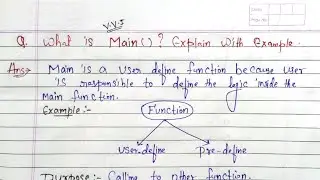 V.V.I
Q. What is Main()? Explain with Example.
Ans→ Main is a user define function because user
is responsible to define the logic inside the
Main function.
Example:-
Function
user-define pre-define
Purpose:- Calling to other function.